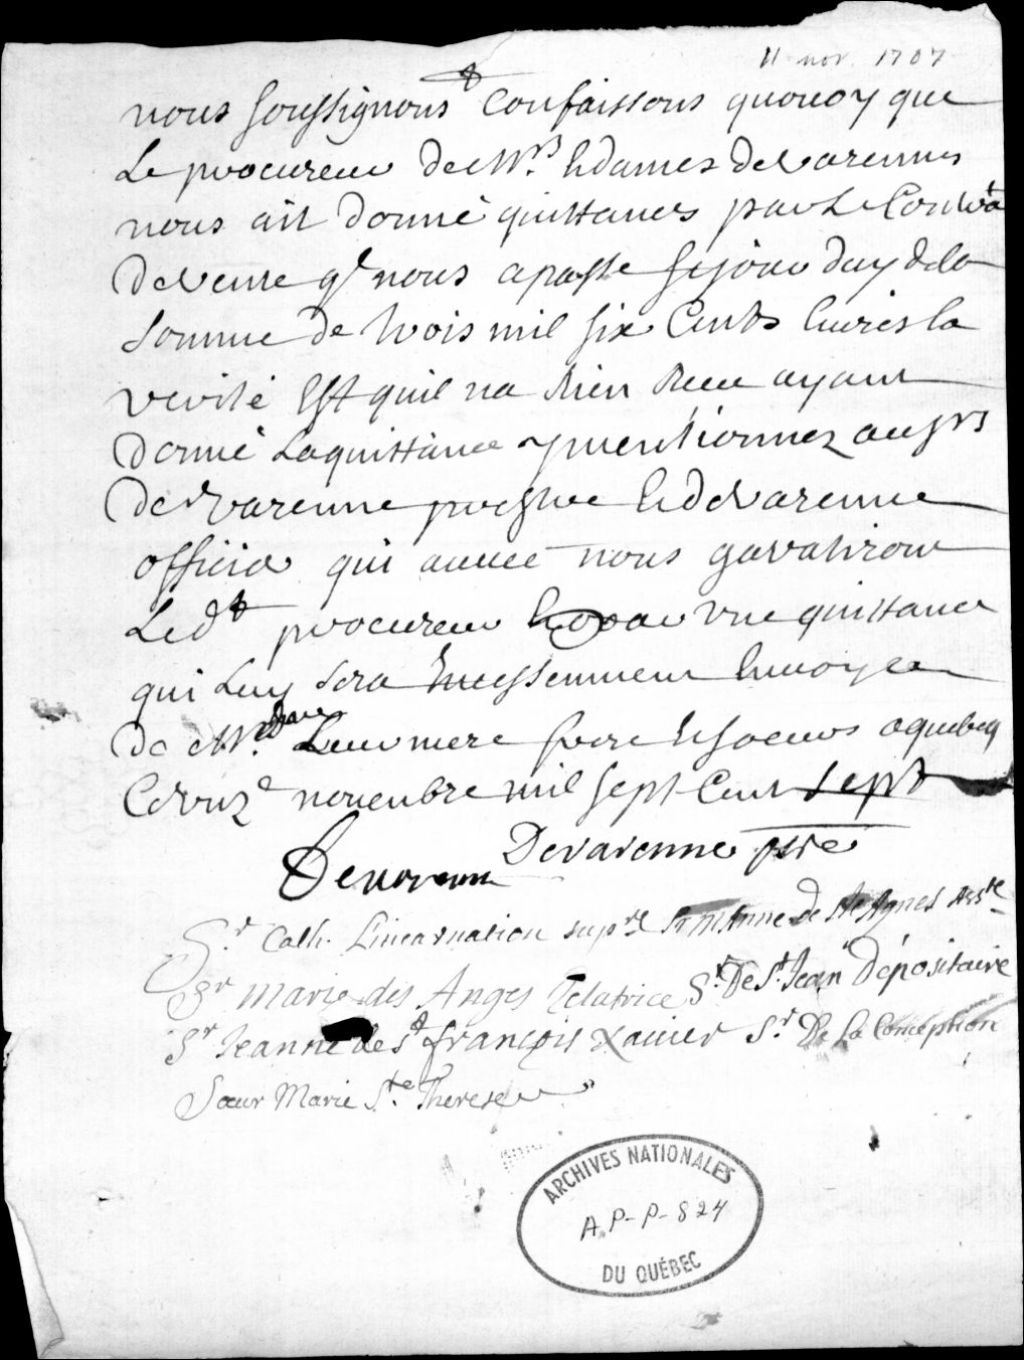 11 nov. 1707
nous soussignons & confaissons quoucoy que
Le procureur de Mrs. & dames de varennes
nous ait donné quittances par Le Contrat
de vente q nous a passé sejour duy de la
somme de trois mil six Cents livres la
verité Est quil na Rien Receu ayant
donné La quittance y mentionnez au Srs
de varenne prestre & de varenne
officier qui avec nous garatiront
Led procureur par une quittance
qui Luy sera Incessemment Envoyee
de Md Leur mere frere & soeurs a quebeq
Ce onze novembre mil sept Cent sept
Devarenne pstre
Devarenne
Sr Cath. Lincarnation supre Sr M Anne de Ste Agnes Asste
Sr Marie des Anges Zelatrice Sr. De St. Jean Dépositaire
Sr Jeanne de St françois Xavier Sr. De La Conception
Sœur Marie Ste. Therese
ARCHIVES NATIONALES
A.P-P-824
DU QUÉBEC